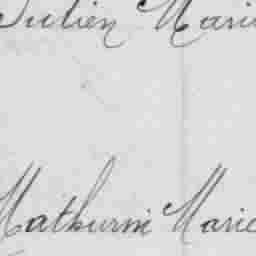 Julien Marie
Mathurin Marie